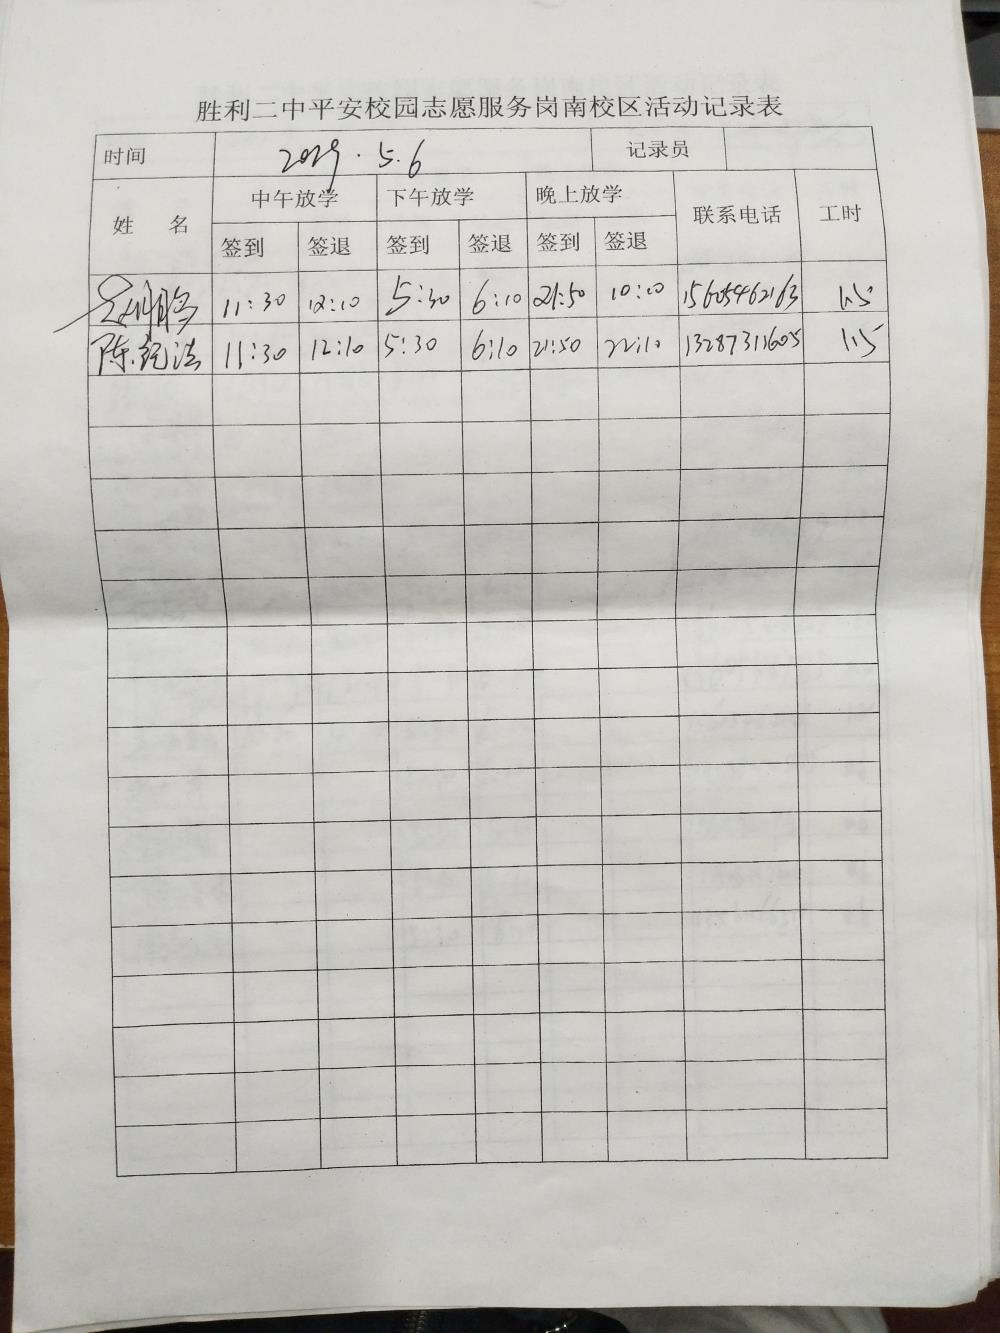 胜利二中平安校园志愿服务岗南校区活动记录表
时间 2019.5.6 记录员
姓 名 中午放学 下午放学 晚上放学 联系电话 工时
签到 签退 签到 签退 签到 签退
11:30 12:10 5:30 6:10 21:50 10:10 15605462163 1.5
陈 11:30 12:10 5:30 6:10 21:50 22:10 13287311605 1.5